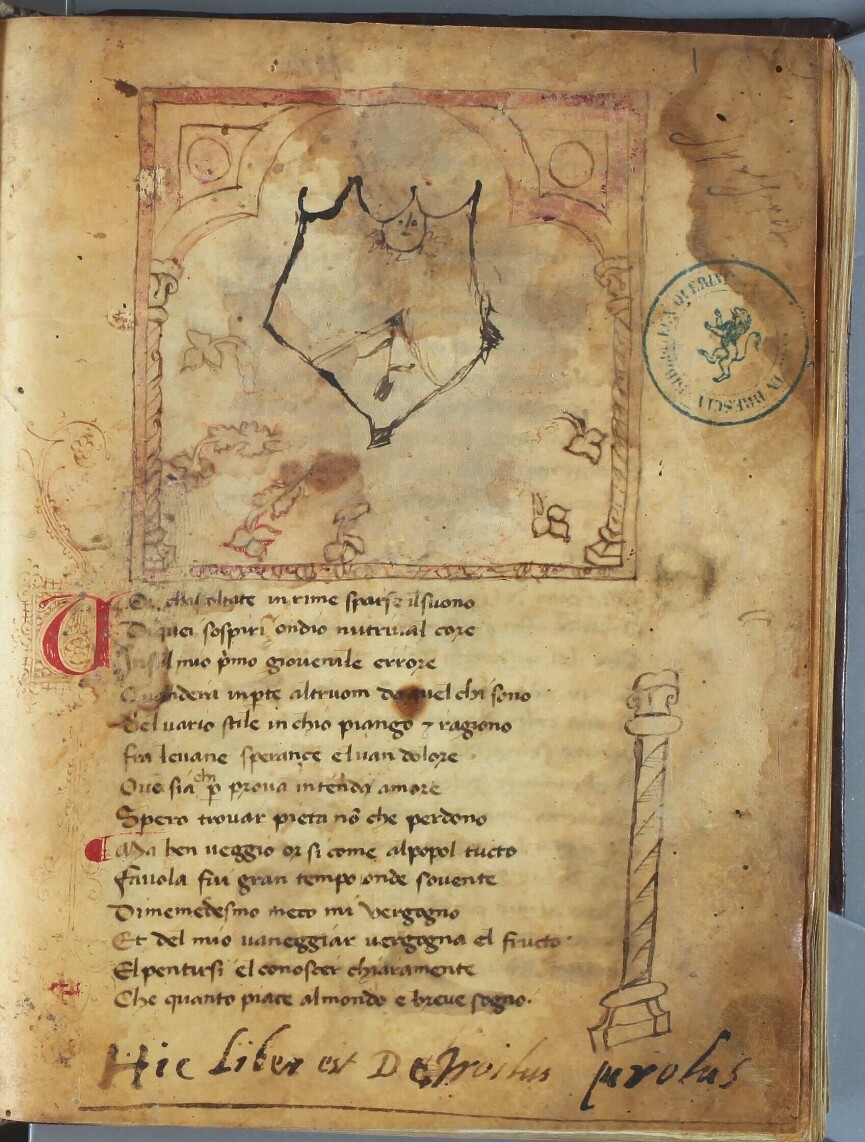 1
BIBLIOTECA QUERINI
IN BRESCIA
Voi chascoltate in rime sparse ilsuono
Di quei sospiri ondio nutriual core
Insul mio pͥmo giouenile errore
Quandera inpͣte altruom da quel chi sono
Del uario stile in chio piango ⁊ ragiono
fra leuane sperançe eluan dolore
Oue sia chi ꝑ proua intenda amore
Spero trouar pieta nõ che perdono
Ma ben ueggio or si come alpopol tucto
fauola fui gran tempo onde souente
Dimemedesmo meco mi vergogno
Et del mio uaneggiar uergogna el fructo
El pentirsi el conoscer chiaramente
Che quanto piace almondo e breue sogno.
Hic Liber est De